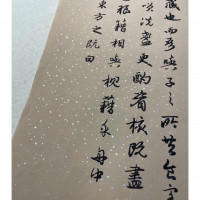 藏也而吾與子之所共食客
笑洗盞更酌肴核既盡
狼籍相與枕藉乎舟中
東方之既白